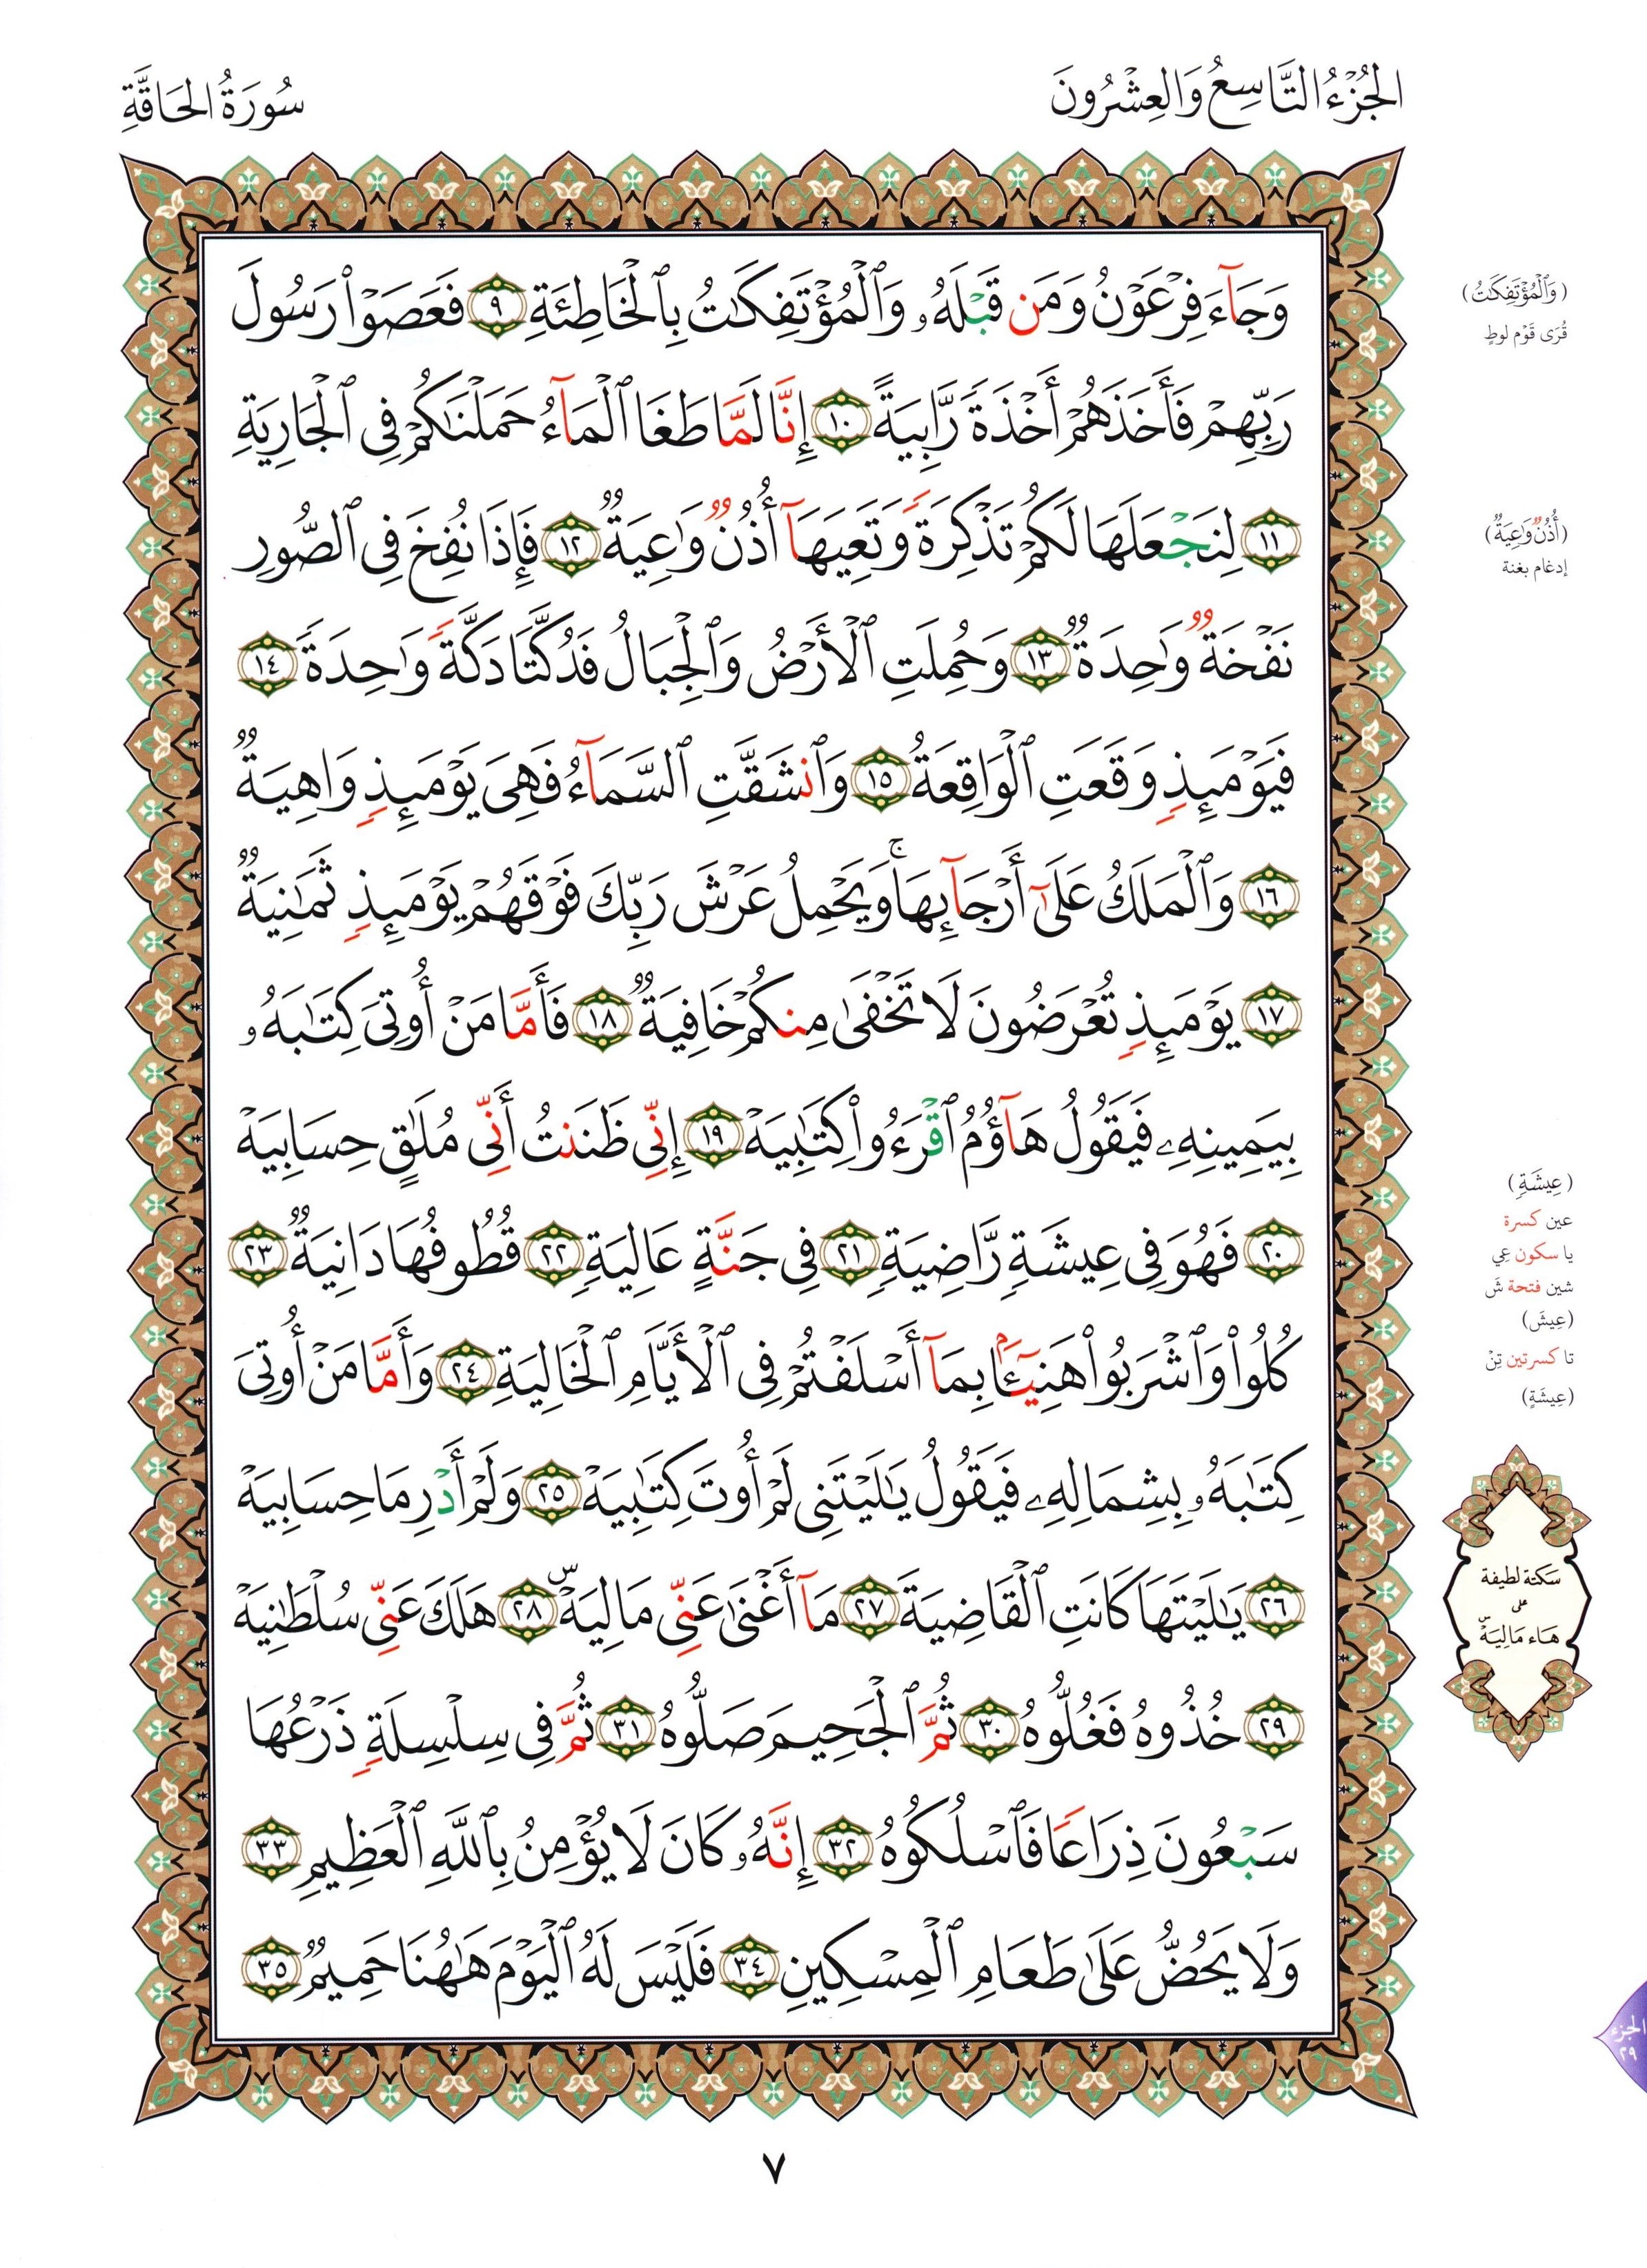 الجُزْءُ التَّاسِعُ وَالعِشْرُونَ
سُورَةُ الحَاقَّةِ
وَجَآءَ فِرْعَوْنُ وَمَن قَبْلَهُۥ وَٱلْمُؤْتَفِكَٰتُ بِٱلْخَاطِئَةِ ٩ فَعَصَوْا۟ رَسُولَ
رَبِّهِمْ فَأَخَذَهُمْ أَخْذَةً رَّابِيَةً ١٠ إِنَّا لَمَّا طَغَا ٱلْمَآءُ حَمَلْنَٰكُمْ فِى ٱلْجَارِيَةِ
١١ لِنَجْعَلَهَا لَكُمْ تَذْكِرَةً وَتَعِيَهَآ أُذُنٌ وَٰعِيَةٌ ١٢ فَإِذَا نُفِخَ فِى ٱلصُّورِ
نَفْخَةٌ وَٰحِدَةٌ ١٣ وَحُمِلَتِ ٱلْأَرْضُ وَٱلْجِبَالُ فَدُكَّتَا دَكَّةً وَٰحِدَةً ١٤
فَيَوْمَئِذٍ وَقَعَتِ ٱلْوَاقِعَةُ ١٥ وَٱنشَقَّتِ ٱلسَّمَآءُ فَهِىَ يَوْمَئِذٍ وَاهِيَةٌ
١٦ وَٱلْمَلَكُ عَلَىٰٓ أَرْجَآئِهَا ۚ وَيَحْمِلُ عَرْشَ رَبِّكَ فَوْقَهُمْ يَوْمَئِذٍ ثَمَٰنِيَةٌ
١٧ يَوْمَئِذٍ تُعْرَضُونَ لَا تَخْفَىٰ مِنكُمْ خَافِيَةٌ ١٨ فَأَمَّا مَنْ أُوتِىَ كِتَٰبَهُۥ
بِيَمِينِهِۦ فَيَقُولُ هَآؤُمُ ٱقْرَءُوا۟ كِتَٰبِيَهْ ١٩ إِنِّى ظَنَنتُ أَنِّى مُلَٰقٍ حِسَابِيَهْ
٢٠ فَهُوَ فِى عِيشَةٍ رَّاضِيَةٍ ٢١ فِى جَنَّةٍ عَالِيَةٍ ٢٢ قُطُوفُهَا دَانِيَةٌ ٢٣
كُلُوا۟ وَٱشْرَبُوا۟ هَنِيٓـًٔۢا بِمَآ أَسْلَفْتُمْ فِى ٱلْأَيَّامِ ٱلْخَالِيَةِ ٢٤ وَأَمَّا مَنْ أُوتِىَ
كِتَٰبَهُۥ بِشِمَالِهِۦ فَيَقُولُ يَٰلَيْتَنِى لَمْ أُوتَ كِتَٰبِيَهْ ٢٥ وَلَمْ أَدْرِ مَا حِسَابِيَهْ
٢٦ يَٰلَيْتَهَا كَانَتِ ٱلْقَاضِيَةَ ٢٧ مَآ أَغْنَىٰ عَنِّى مَالِيَهْ ۜ ٢٨ هَلَكَ عَنِّى سُلْطَٰنِيَهْ
٢٩ خُذُوهُ فَغُلُّوهُ ٣٠ ثُمَّ ٱلْجَحِيمَ صَلُّوهُ ٣١ ثُمَّ فِى سِلْسِلَةٍ ذَرْعُهَا
سَبْعُونَ ذِرَاعًا فَٱسْلُكُوهُ ٣٢ إِنَّهُۥ كَانَ لَا يُؤْمِنُ بِٱللَّهِ ٱلْعَظِيمِ ٣٣
وَلَا يَحُضُّ عَلَىٰ طَعَامِ ٱلْمِسْكِينِ ٣٤ فَلَيْسَ لَهُ ٱلْيَوْمَ هَٰهُنَا حَمِيمٌ ٣٥
(وَٱلْمُؤْتَفِكَٰتُ)
قُرَى قَوْم لوطٍ
(أُذُنٌ وَٰعِيَةٌ)
إدغام بغنة
(عِيشَةٍ)
عين كسرة
يا سكون عِي
شين فتحة شَ
(عِيشَ)
تا كسرتين تِنْ
(عِيشَةٍ)
سكتة لطيفة
على
هَاء مَالِيَهْ ۜ
الجزء
٢٩
٧